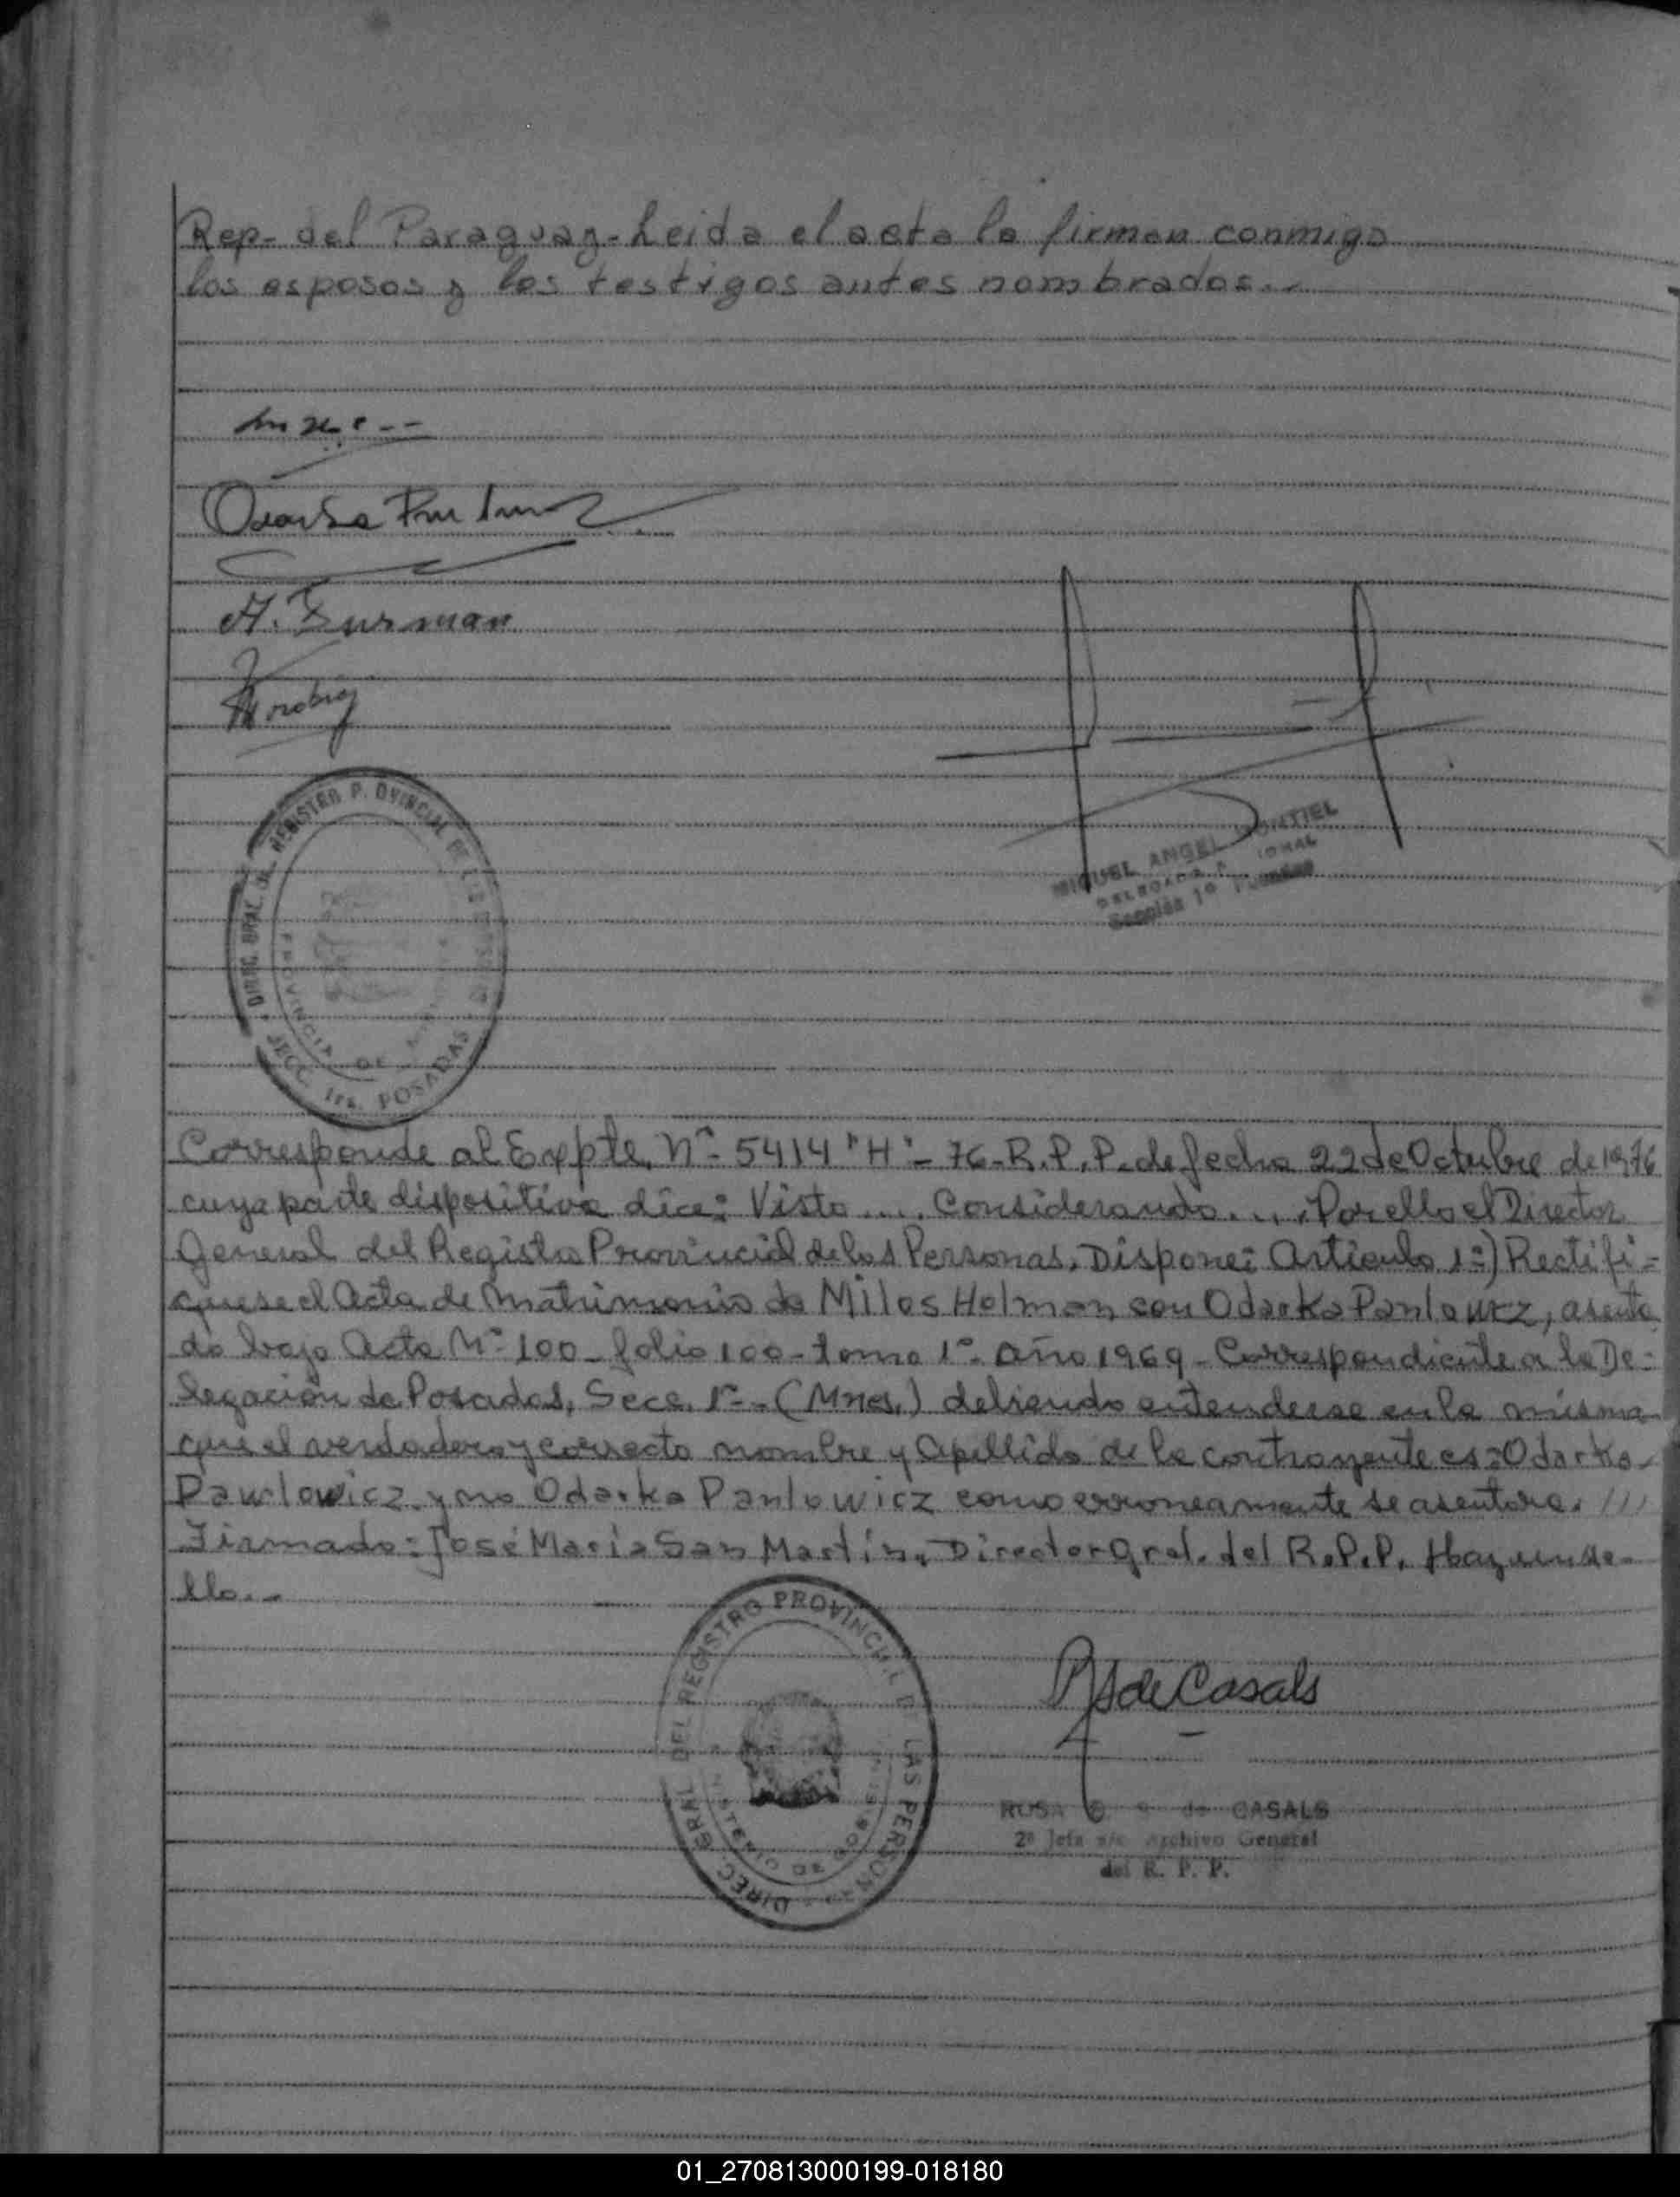 Rep- del Paraguay-Leida el acta la firman conmigo
los esposos y los testigos antes nombrados..-
Odarka
A. Furman
DIREC. GRAL. DEL REGISTRO PROVINCIAL DE LAS PERSONAS
PROVINCIA DE MISIONES
SECC. 1ra. POSADAS
MIGUEL ANGEL MONTIEL
DELEGADO
Sección 1ª Posadas
Corresponde al Expte. Nº- 5414 "H"- 76-R.P.P. de fecha 22 de Octubre de 1976
cuya parte dispositiva dice: Visto .... Considerando ...., Por ello el Director
General del Registro Provincial de las Personas, Dispone: Articulo 1º) Rectifi=
quese el Acta de Matrimonio de Milos Holman con Odarka Panlowicz, asenta
do bajo Acta Nº- 100- folio 100- tomo 1º- Año 1969- Correspondiente a la De-
legación de Posadas, Secc. 1ª-.(Mnes.) debiendo entenderse en la misma
que el verdadero y correcto nombre y Apellido de la contrayente es: Odarka
Pawlowicz y no Odarka Panlowicz como erroneamente se asentara. ///
Firmado: José Maria San Martín, Director Gral. del R.P.P. Hay un se-
llo..-
DIREC. GRAL. DEL REGISTRO PROVINCIAL DE LAS PERSONAS
RS de Casals
ROSA de CASALS
2ª Jefa a/c Archivo General
del R. P. P.
01_270813000199-018180